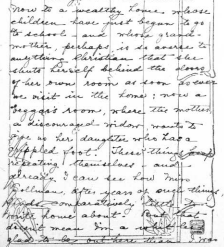 now to a wealthy home, whose
children have just begun to go
to school and whose grand-
mother, perhaps, is so averse to
anything Christian that she
shuts herself behind the doors
of her own room as soon as ever
we visit in the home; now a
beggars room, where the mother
a discouraged widow, wants to
give us her daughter who has a
crippled foot. These things keep
repeating themselves - and
already I can see how Miss
Gillman, after years of such things,
comparatively
about. But that
doesn't mean I'm a
to be out here than